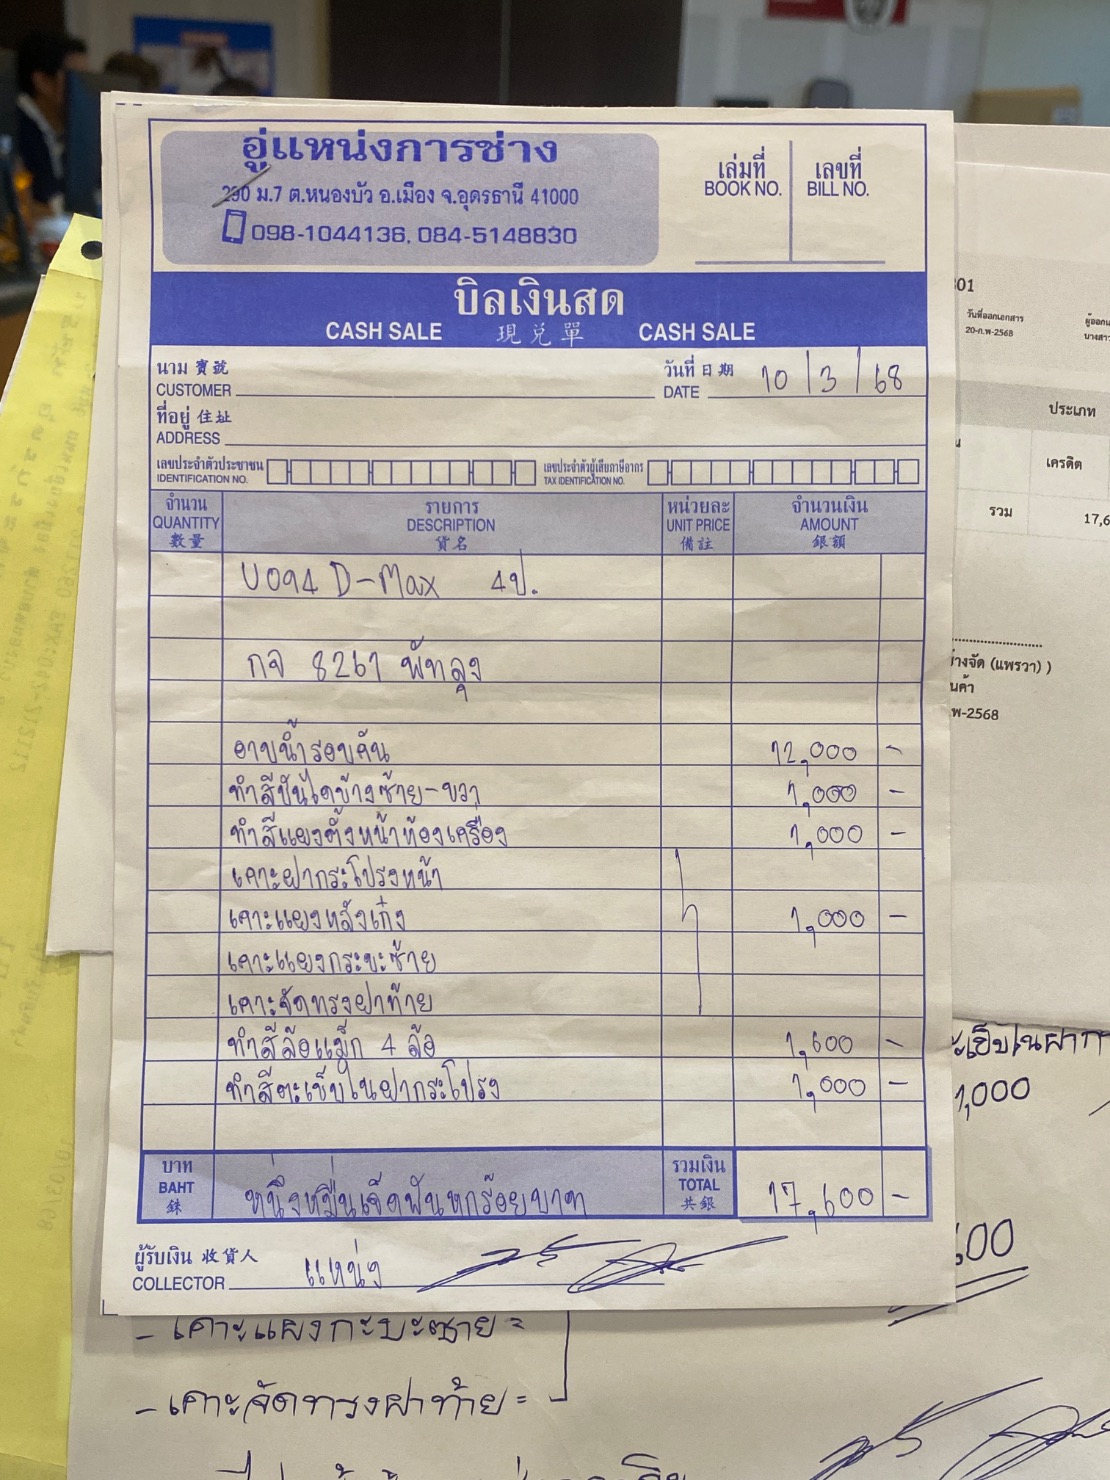 อู่แหน่งการช่าง
290 ม.7 ต.หนองบัว อ.เมือง จ.อุดรธานี 41000
098-1044136, 084-5148830
เล่มที่ เลขที่
BOOK NO. BILL NO.
บิลเงินสด
CASH SALE 現兌單 CASH SALE
นาม 寶號 วันที่ 日期 10/3/68
CUSTOMER DATE
ที่อยู่ 住址
ADDRESS
เลขประจำตัวประชาชน เลขประจำตัวผู้เสียภาษีอากร
IDENTIFICATION NO. TAX IDENTIFICATION NO.
จำนวน รายการ หน่วยละ จำนวนเงิน
QUANTITY DESCRIPTION UNIT PRICE AMOUNT
數量 貨名 備註 銀額
U094 D-Max 4ป.
กจ 8267 พัทลุง
อาบน้ำรอบคัน 12,000 -
ทำสีบันไดข้างซ้าย-ขวา 1,000 -
ทำสีแผงตั้งหน้าห้องเครื่อง 1,000 -
เคาะฝากระโปรงหน้า
เคาะแผงหลังเก๋ง 1,000 -
เคาะแผงกระบะซ้าย
เคาะจัดทรงฝาท้าย
ทำสีล้อแม็ก 4 ล้อ 1,600 -
ทำสีตะเข็บในฝากระโปรง 1,000 -
บาท รวมเงิน
BAHT หนึ่งหมื่นเจ็ดพันหกร้อยบาท TOTAL 17,600 -
銖 共銀
ผู้รับเงิน 收貨人
COLLECTOR แหน่ง
301
วันที่ออกเอกสาร
20-ก.พ-2568
ประเภท
เครดิต
รวม 17,6
้างจัด (แพรวา) )
นค้า
พ-2568
ะเข็บในฝาก
1,000
600
- เคาะแผงกะบะซ้าย =
- เคาะจัดทรงฝาท้าย =